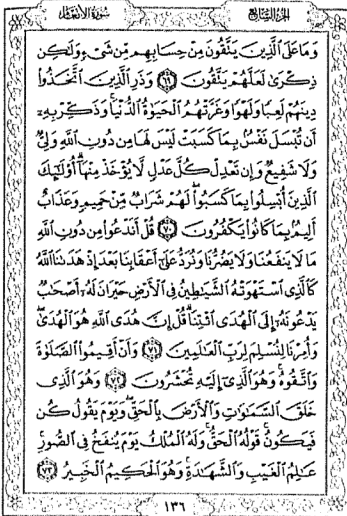 الجزء السابع
سورة الأنعام
وَمَا عَلَى ٱلَّذِينَ يَتَّقُونَ مِنْ حِسَابِهِم مِّن شَىْءٍ وَلَٰكِن
ذِكْرَىٰ لَعَلَّهُمْ يَتَّقُونَ ٦٩ وَذَرِ ٱلَّذِينَ ٱتَّخَذُوا۟
دِينَهُمْ لَعِبًا وَلَهْوًا وَغَرَّتْهُمُ ٱلْحَيَوٰةُ ٱلدُّنْيَا وَذَكِّرْ بِهِۦٓ
أَن تُبْسَلَ نَفْسٌۢ بِمَا كَسَبَتْ لَيْسَ لَهَا مِن دُونِ ٱللَّهِ وَلِىٌّ
وَلَا شَفِيعٌ وَإِن تَعْدِلْ كُلَّ عَدْلٍ لَّا يُؤْخَذْ مِنْهَآ أُو۟لَٰٓئِكَ
ٱلَّذِينَ أُبْسِلُوا۟ بِمَا كَسَبُوا۟ لَهُمْ شَرَابٌ مِّنْ حَمِيمٍ وَعَذَابٌ
أَلِيمٌۢ بِمَا كَانُوا۟ يَكْفُرُونَ ٧٠ قُلْ أَنَدْعُوا۟ مِن دُونِ ٱللَّهِ
مَا لَا يَنفَعُنَا وَلَا يَضُرُّنَا وَنُرَدُّ عَلَىٰٓ أَعْقَابِنَا بَعْدَ إِذْ هَدَىٰنَا ٱللَّهُ
كَٱلَّذِى ٱسْتَهْوَتْهُ ٱلشَّيَٰطِينُ فِى ٱلْأَرْضِ حَيْرَانَ لَهُۥٓ أَصْحَٰبٌ
يَدْعُونَهُۥٓ إِلَى ٱلْهُدَى ٱئْتِنَا قُلْ إِنَّ هُدَى ٱللَّهِ هُوَ ٱلْهُدَىٰ
وَأُمِرْنَا لِنُسْلِمَ لِرَبِّ ٱلْعَٰلَمِينَ ٧١ وَأَنْ أَقِيمُوا۟ ٱلصَّلَوٰةَ
وَٱتَّقُوهُ وَهُوَ ٱلَّذِىٓ إِلَيْهِ تُحْشَرُونَ ٧٢ وَهُوَ ٱلَّذِى
خَلَقَ ٱلسَّمَٰوَٰتِ وَٱلْأَرْضَ بِٱلْحَقِّ وَيَوْمَ يَقُولُ كُن
فَيَكُونُ قَوْلُهُ ٱلْحَقُّ وَلَهُ ٱلْمُلْكُ يَوْمَ يُنفَخُ فِى ٱلصُّورِ
عَٰلِمُ ٱلْغَيْبِ وَٱلشَّهَٰدَةِ وَهُوَ ٱلْحَكِيمُ ٱلْخَبِيرُ ٧٣
١٣٦